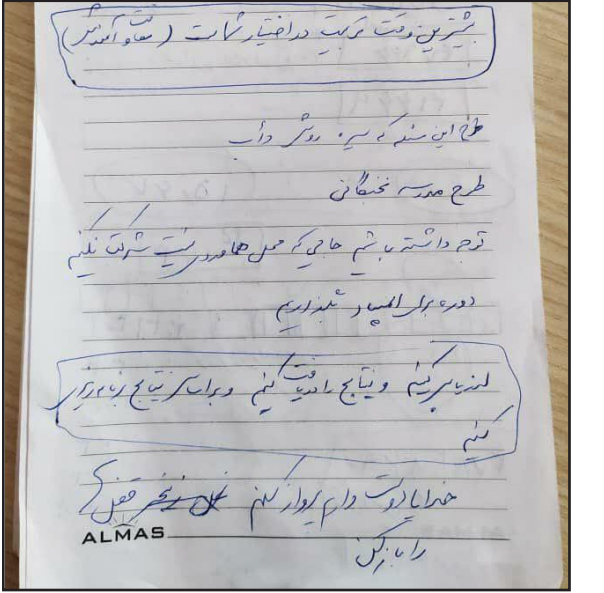 بیشترین وقت تربیت در اختیار شماست (معاونت آموزش)
طرح این سند که سیره روش
طرح مدرسه نخبگانی
توجه داشته باشیم جایی که محل هماوردی نیست شرکت نکنیم
دوره برای المپیاد نگذاریم
ارزیابی کنیم و نتایج را دریافت کنیم و براساس نتایج برنامه‌ریزی
کنیم
خدایا دوست دارم پرواز کنم قفل
را باز کن
ALMAS